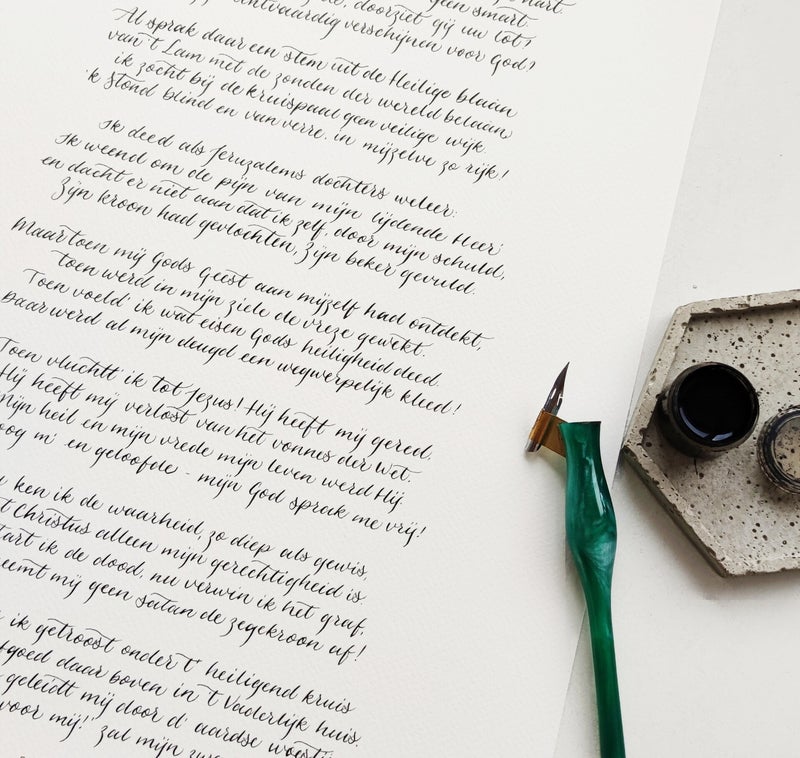 geen smart
doorziet gij uw lot?
verschijnen voor God?
Al sprak daar een stem uit de Heilige blaân
van 't Lam met de zonden der wereld belaân,
ik zocht bij de kruispaal geen veilige wijk
'k Stond blind en van verre, in mijzelve zo rijk!
Ik deed als Jeruzalems dochters weleer:
Ik weend om de pijn van mijn lijdende Heer
en dacht er niet aan dat ik zelf, door mijn schuld,
Zijn kroon had gevlochten, Zijn beker gevuld.
Maar toen mij Gods Geest aan mijzelf had ontdekt,
toen werd in mijn ziele de vreze gewekt.
Toen voeld' ik wat eisen Gods heiligheid deed.
Daar werd al mijn deugd een wegwerpelijk kleed!
Toen vluchtt ik tot Jezus! Hij heeft mij gered.
Hij heeft mij verlost van het vonnes der Wet.
Mijn heil en mijn vrede mijn leven werd Hij.
oog m' en geloofde - mijn God sprak me vrij!
ken ik de waarheid, zo diep als gewis,
t Christus alleen mijn gerechtigheid is.
tart ik de dood, nu verwin ik het graf,
eemt mij geen satan de zegekroon af!
ik getroost onder 't heiligend kruis
goed daar boven in 't Vaderlijk huis.
geleidt mij door d' aardse
voor mij!' zal mijn